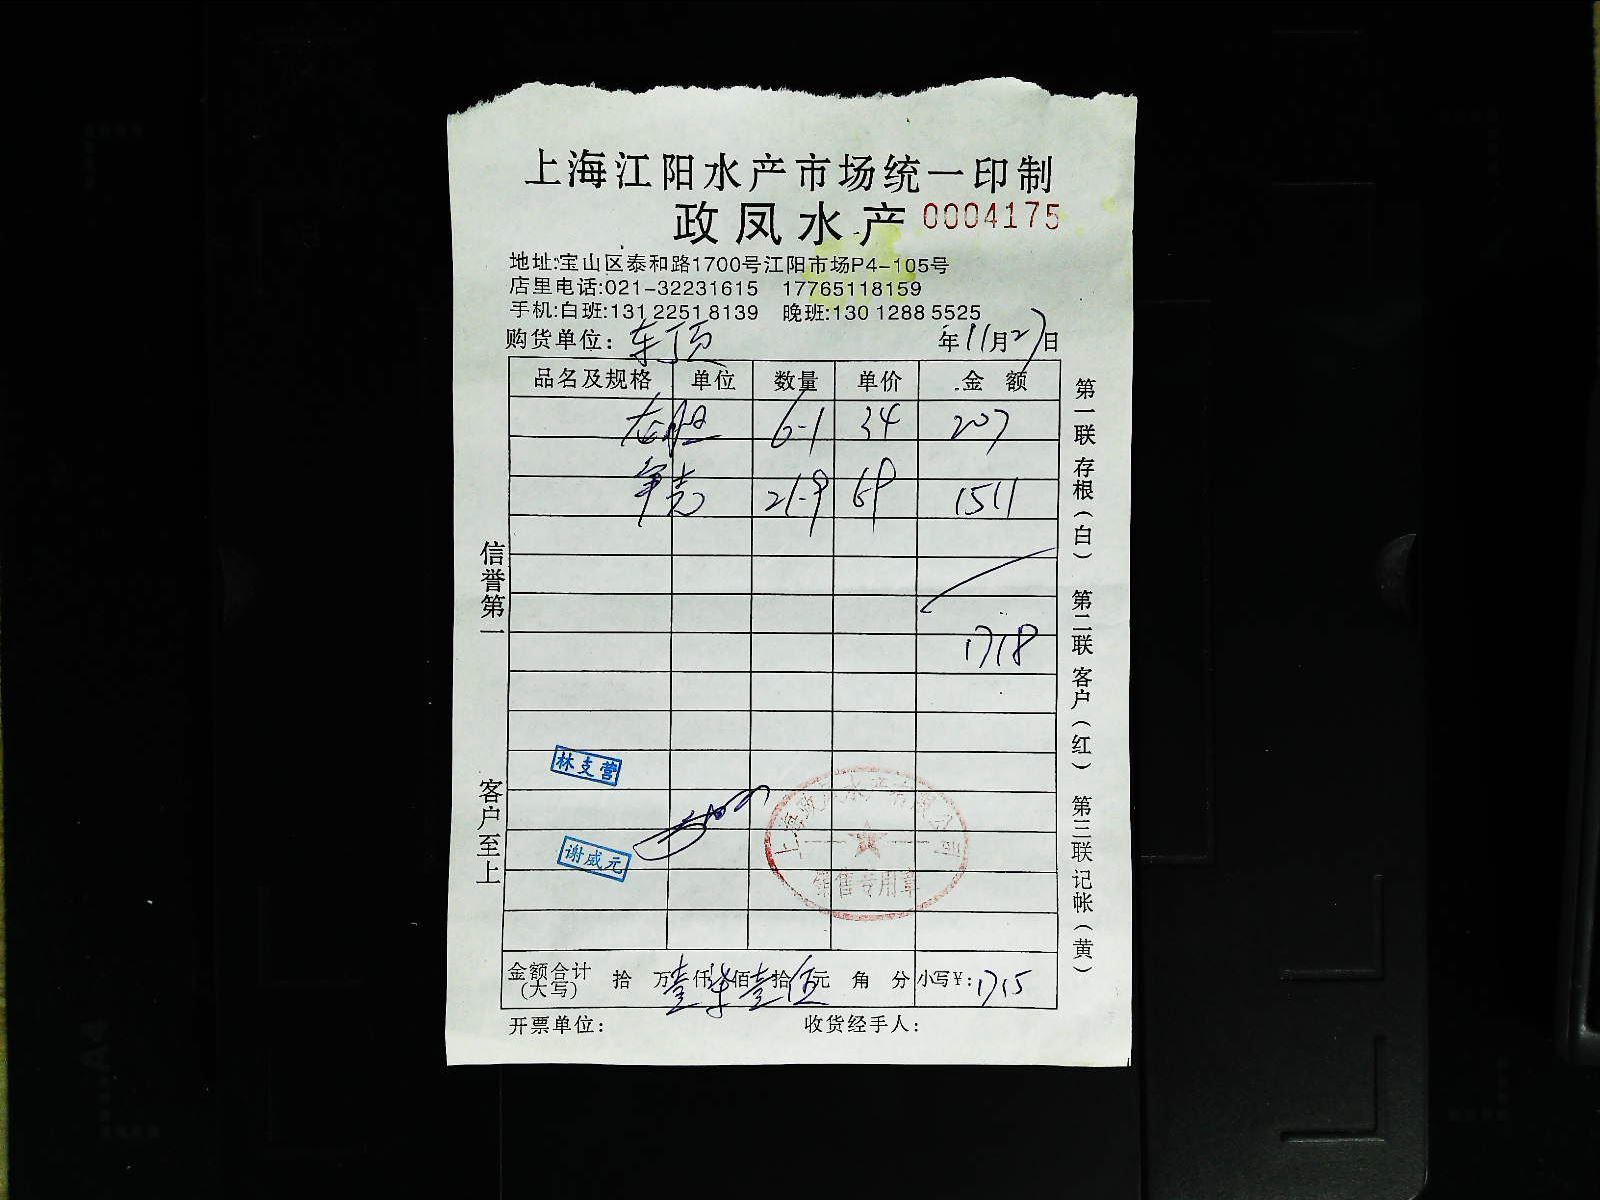 上海江阳水产市场统一印制
政凤水产 0004175
地址:宝山区泰和路1700号江阳市场P4-105号
店里电话:021-32231615 17765118159
手机:白班:131 2251 8139 晚班:130 1288 5525
购货单位: 东顶 年11月27日
品名及规格 单位 数量 单价 金额
龙胆 6-1 34 207
笋壳 21-9 69 1511
1718
林支营
谢威元
销售专用章
金额合计(大写) 拾 万壹仟柒佰壹拾伍元 角 分 小写¥:1715
开票单位: 收货经手人:
信誉第一
客户至上
第一联 存根(白) 第二联 客户(红) 第三联 记帐(黄)